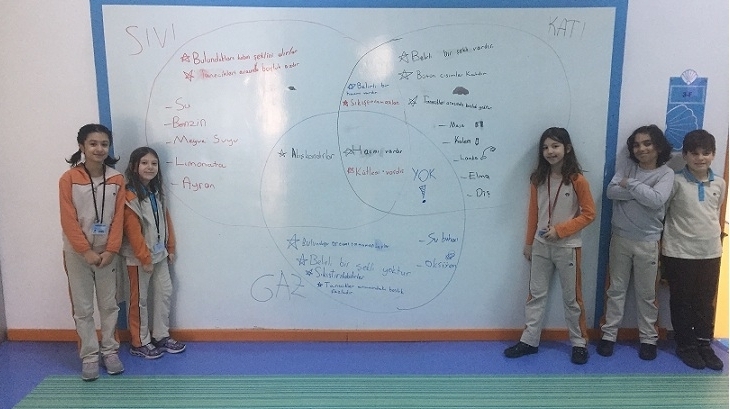 SIVI
KATI
Bulundukları kabın şeklini alırlar
Tanecikleri arasında boşluk azdır.
- Su
- Benzin
- Meyve Suyu
- Limonata
- Ayran
Belirli bir
Sıkıştırılamazlar
Belirli bir şekli vardır.
Bütün cisimler Katıdır
Tanecikleri arasında boşluk yoktur
- Masa
- Kalem
- Lamba
- Elma
- Diş
Akışkandırlar
Hacmi vardır
Kütlesi vardır
YOK
!
Belirli bir şekli yoktur
Sıkıştırılabilirler
Tanecikleri arasındaki boşluk
fazladır
- Su buharı
- Oksijen
GAZ